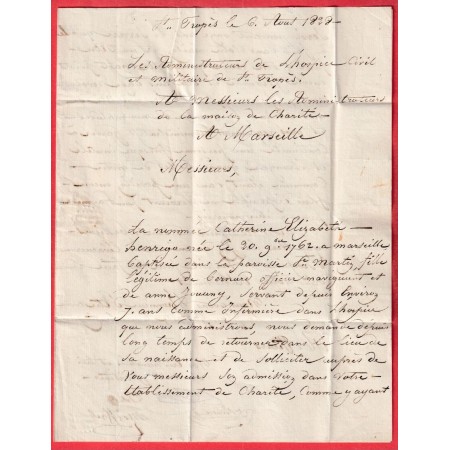 St. Tropès le 6. Aout 1828
Les Administrateurs de L'hospice Civil
et militaire de St. Tropès.
A Messieurs les Administrateurs
de la maison de Charité
A Marseille
Messieurs,
La nommée Catherine Elizabeth
née le 30. 9bre 1762. a marseille
baptisée dans la parroisse St. Martin, fille
légitime de Bernard officier navigant et
de anne, servant depuis environ
7. ans comme Infirmière dans L'hospice
que nous administrons, nous demande depuis
long temps de retourner dans le lieu de
sa naissance et de solliciter auprès de
vous messieurs son admission dans votre
établissement de Charité, comme ayant